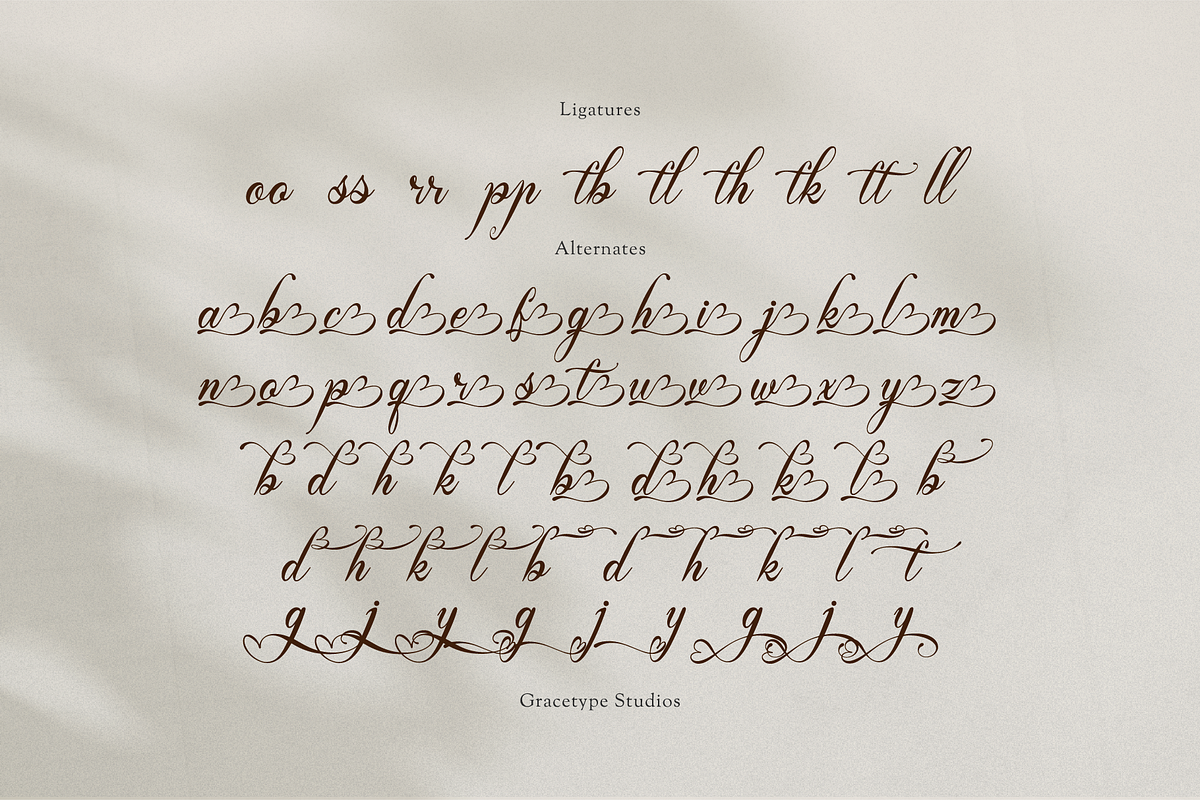 Ligatures
oo ss rr pp tb tl th tk tt ll
Alternates
a b c d e f g h i j k l m
n o p q r s t u v w x y z
b d h k l b d h k l b
d h k l b d h k l t
g j y g j y g j y
Gracetype Studios